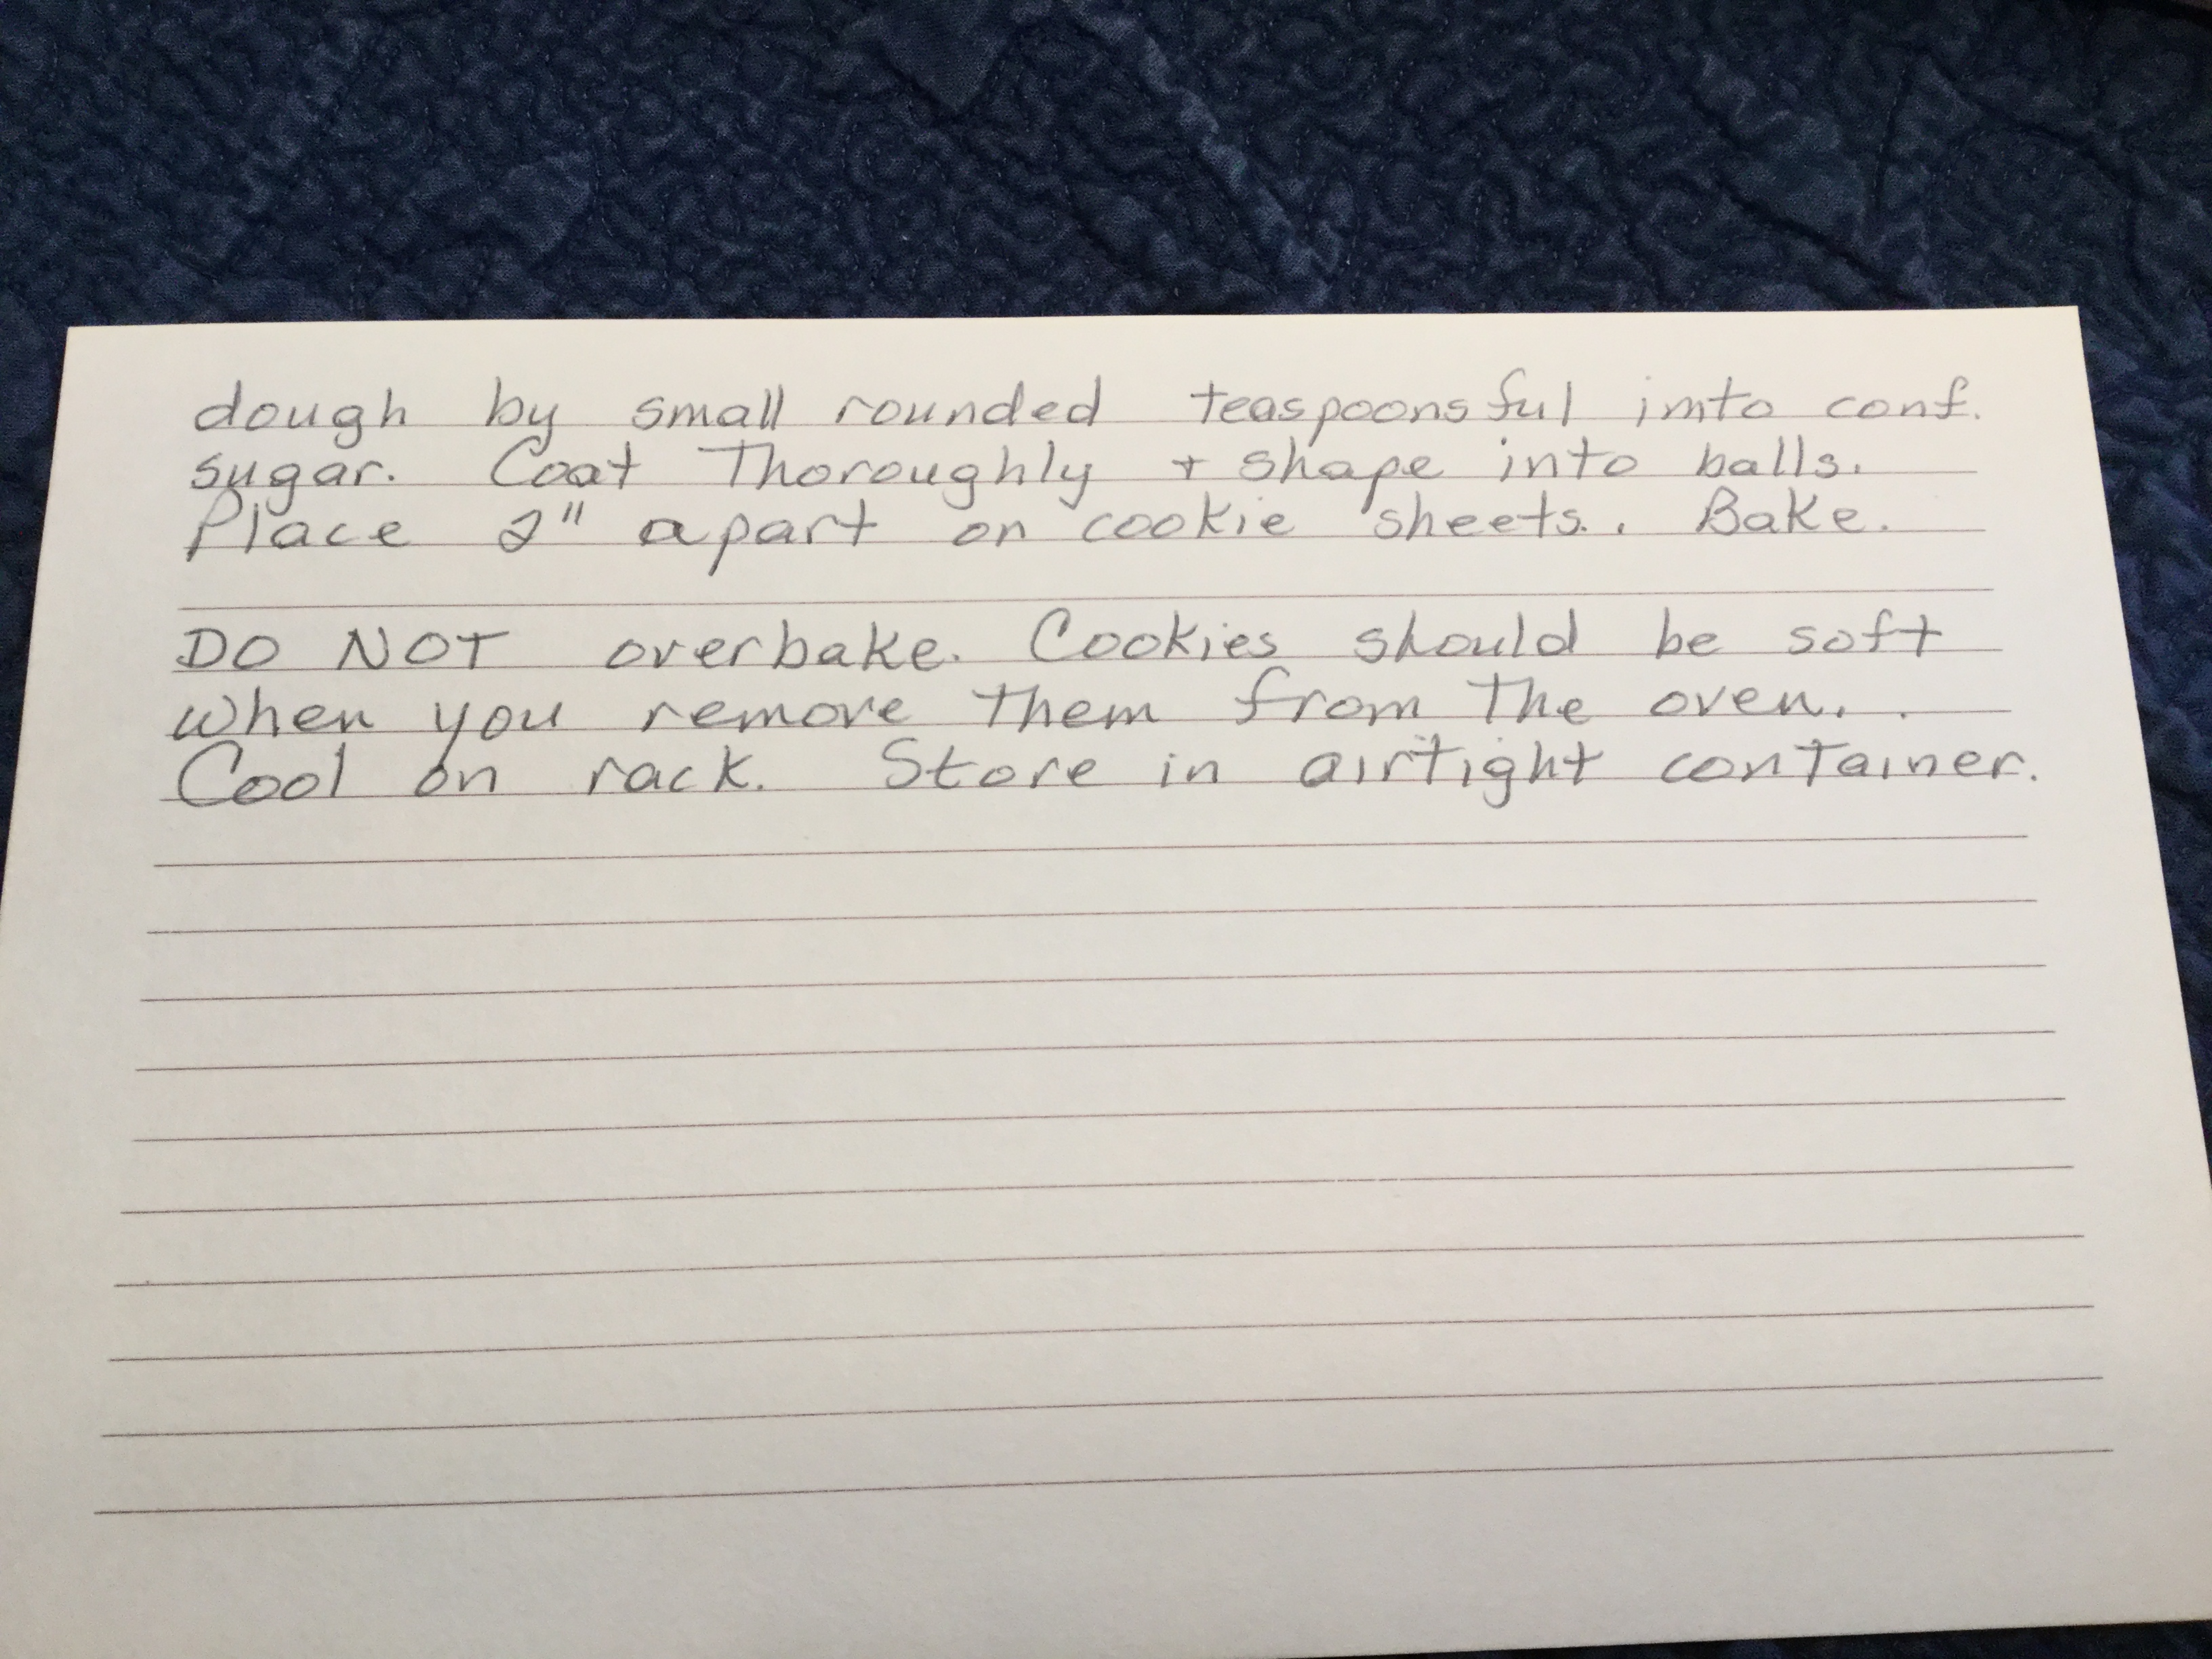 dough by small rounded teaspoonsful imto conf.
sugar. Coat Thoroughly + shape into balls.
Place 2" apart on cookie sheets.. Bake.
DO NOT overbake. Cookies should be soft
when you remove them from The oven. .
Cool on rack. Store in airtight container.